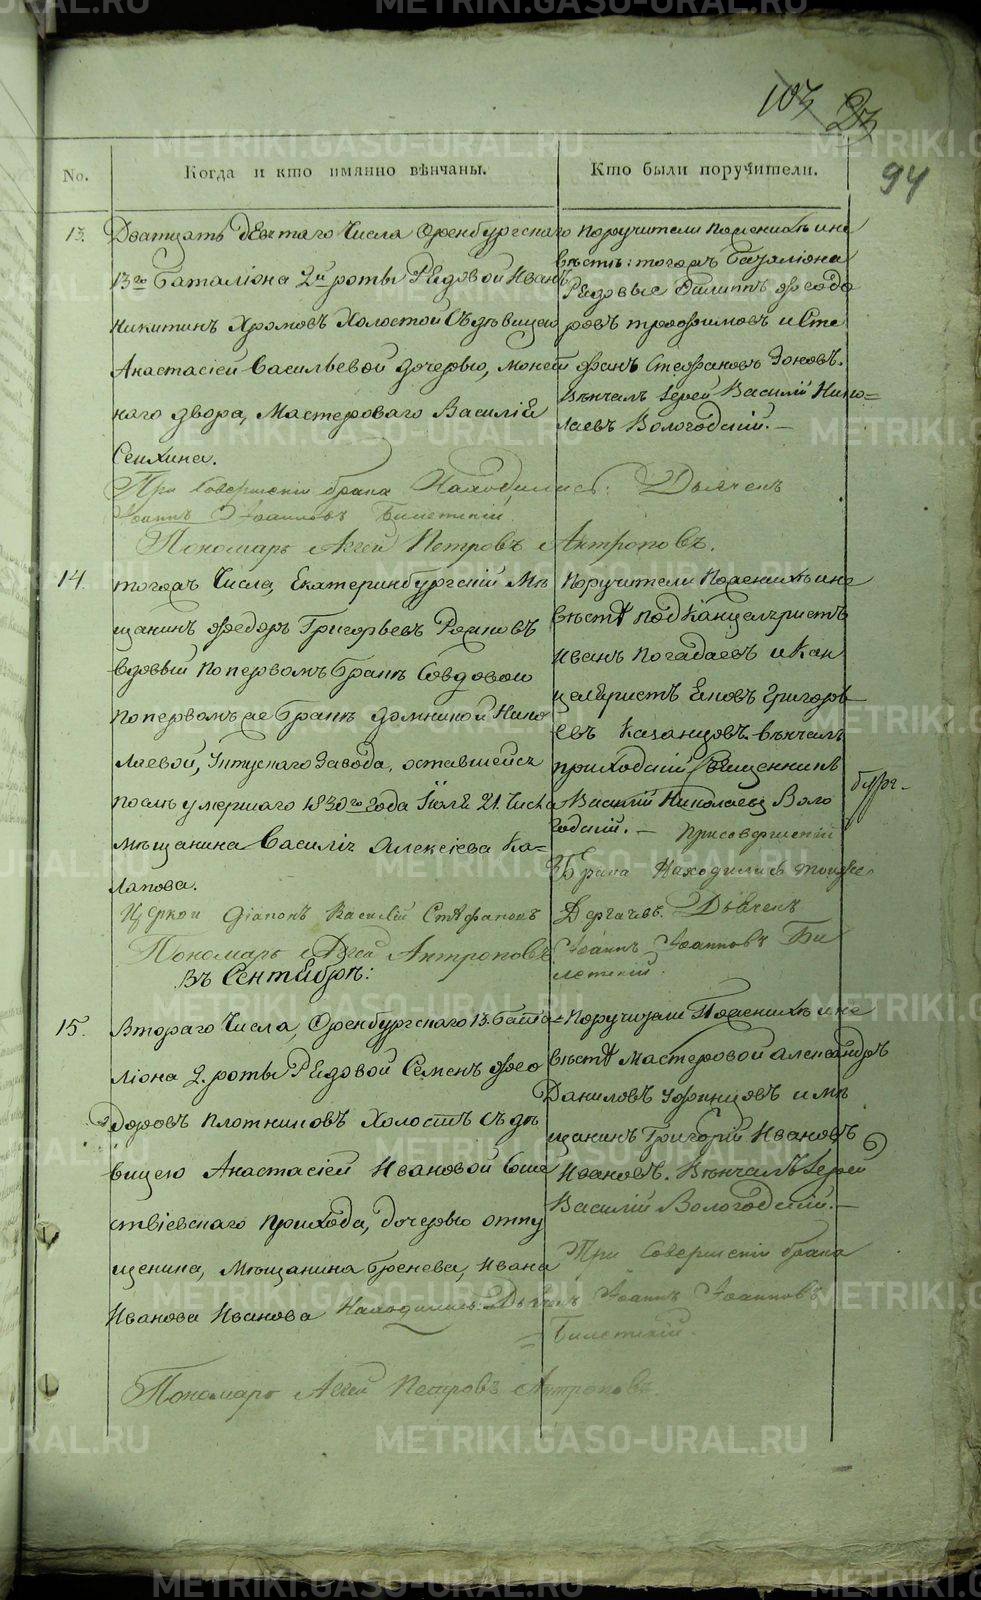 103 23
94
No.
Когда и кто имянно вѣнчаны.
Кто были поручители.
13.
Дватцать девятаго Числа Оренбургскаго
13го Баталіона 2й роты Рядовой Иванъ
Никитинъ Хромовъ Холостой Съ дѣвицею
Анастасіей Васильевой дочерью, монет
наго двора, Мастероваго Василія
Сенхина.
При Совершеніи брака Находились: Дьячекъ
Іоаннъ Іоанновъ Билетскій
Пономарь Аггей Петровъ Антроповъ.
Поручители По женихѣ и не
вѣстѣ: тогожъ Баталіона
Рядовые Филиппъ Феодо
ровъ трофимовъ и Сте
фанъ Стефановъ Зоновъ.
Вѣнчалъ Іерей Василій Нико=
лаевъ Вологодскій.—
14.
тогожъ Числа, Екатеринбургскій Мѣ
щанинъ Федоръ Григорьевъ Рожновъ
вдовый по первомъ бракѣ Со вдовою
по первомъ же бракѣ Домникой Нико
лаевой, Уктускаго Завода, оставшейся
послѣ умершаго 1830го года Іюля 21. Числа
Мѣщанина Василія Алексіева Ка-
лапова.
Церкви Діаконъ Василій Стефановъ
Пономарь Аггей Антроповъ
Поручители По женихѣ и не
вѣстѣ подКанцеляристъ
Иванъ Погадаевъ и Кан
целяристъ Еновъ Григорь
евъ Казанцовъ. вѣнчалъ
приходскій Священникъ
Василій Николаевъ Воло
годскій.— При совершеніи
Брака Находились тойже
Дергачевъ. Дьячекъ
Іоаннъ Іоанновъ Би
летскій.
Въ Сентябрѣ:
15.
Втораго Числа, Оренбургскаго 13. Бата-
ліона 2. роты Рядовой Семенъ Фео
доровъ Плотниковъ Холостъ Съ дѣ
вицею Анастасіей Ивановой Соше
ствіевскаго прихода, дочерью отпу
щенина, Мѣщанина бренева, Ивана
Иванова Иванова Находились: Дьячекъ Іоаннъ Іоанновъ
Билетскій.
Пономарь Аггей Петровъ Антроповъ.
Поручители По женихѣ и не
вѣстѣ Мастеровой Александръ
Даниловъ Уфинцовъ и мѣ
щанинъ Григорій Ивановъ
Ивановъ. Вѣнчалъ Іерей
Василій Вологодскій.—
При Совершеніи брака
METRIKI.GASO-URAL.RU